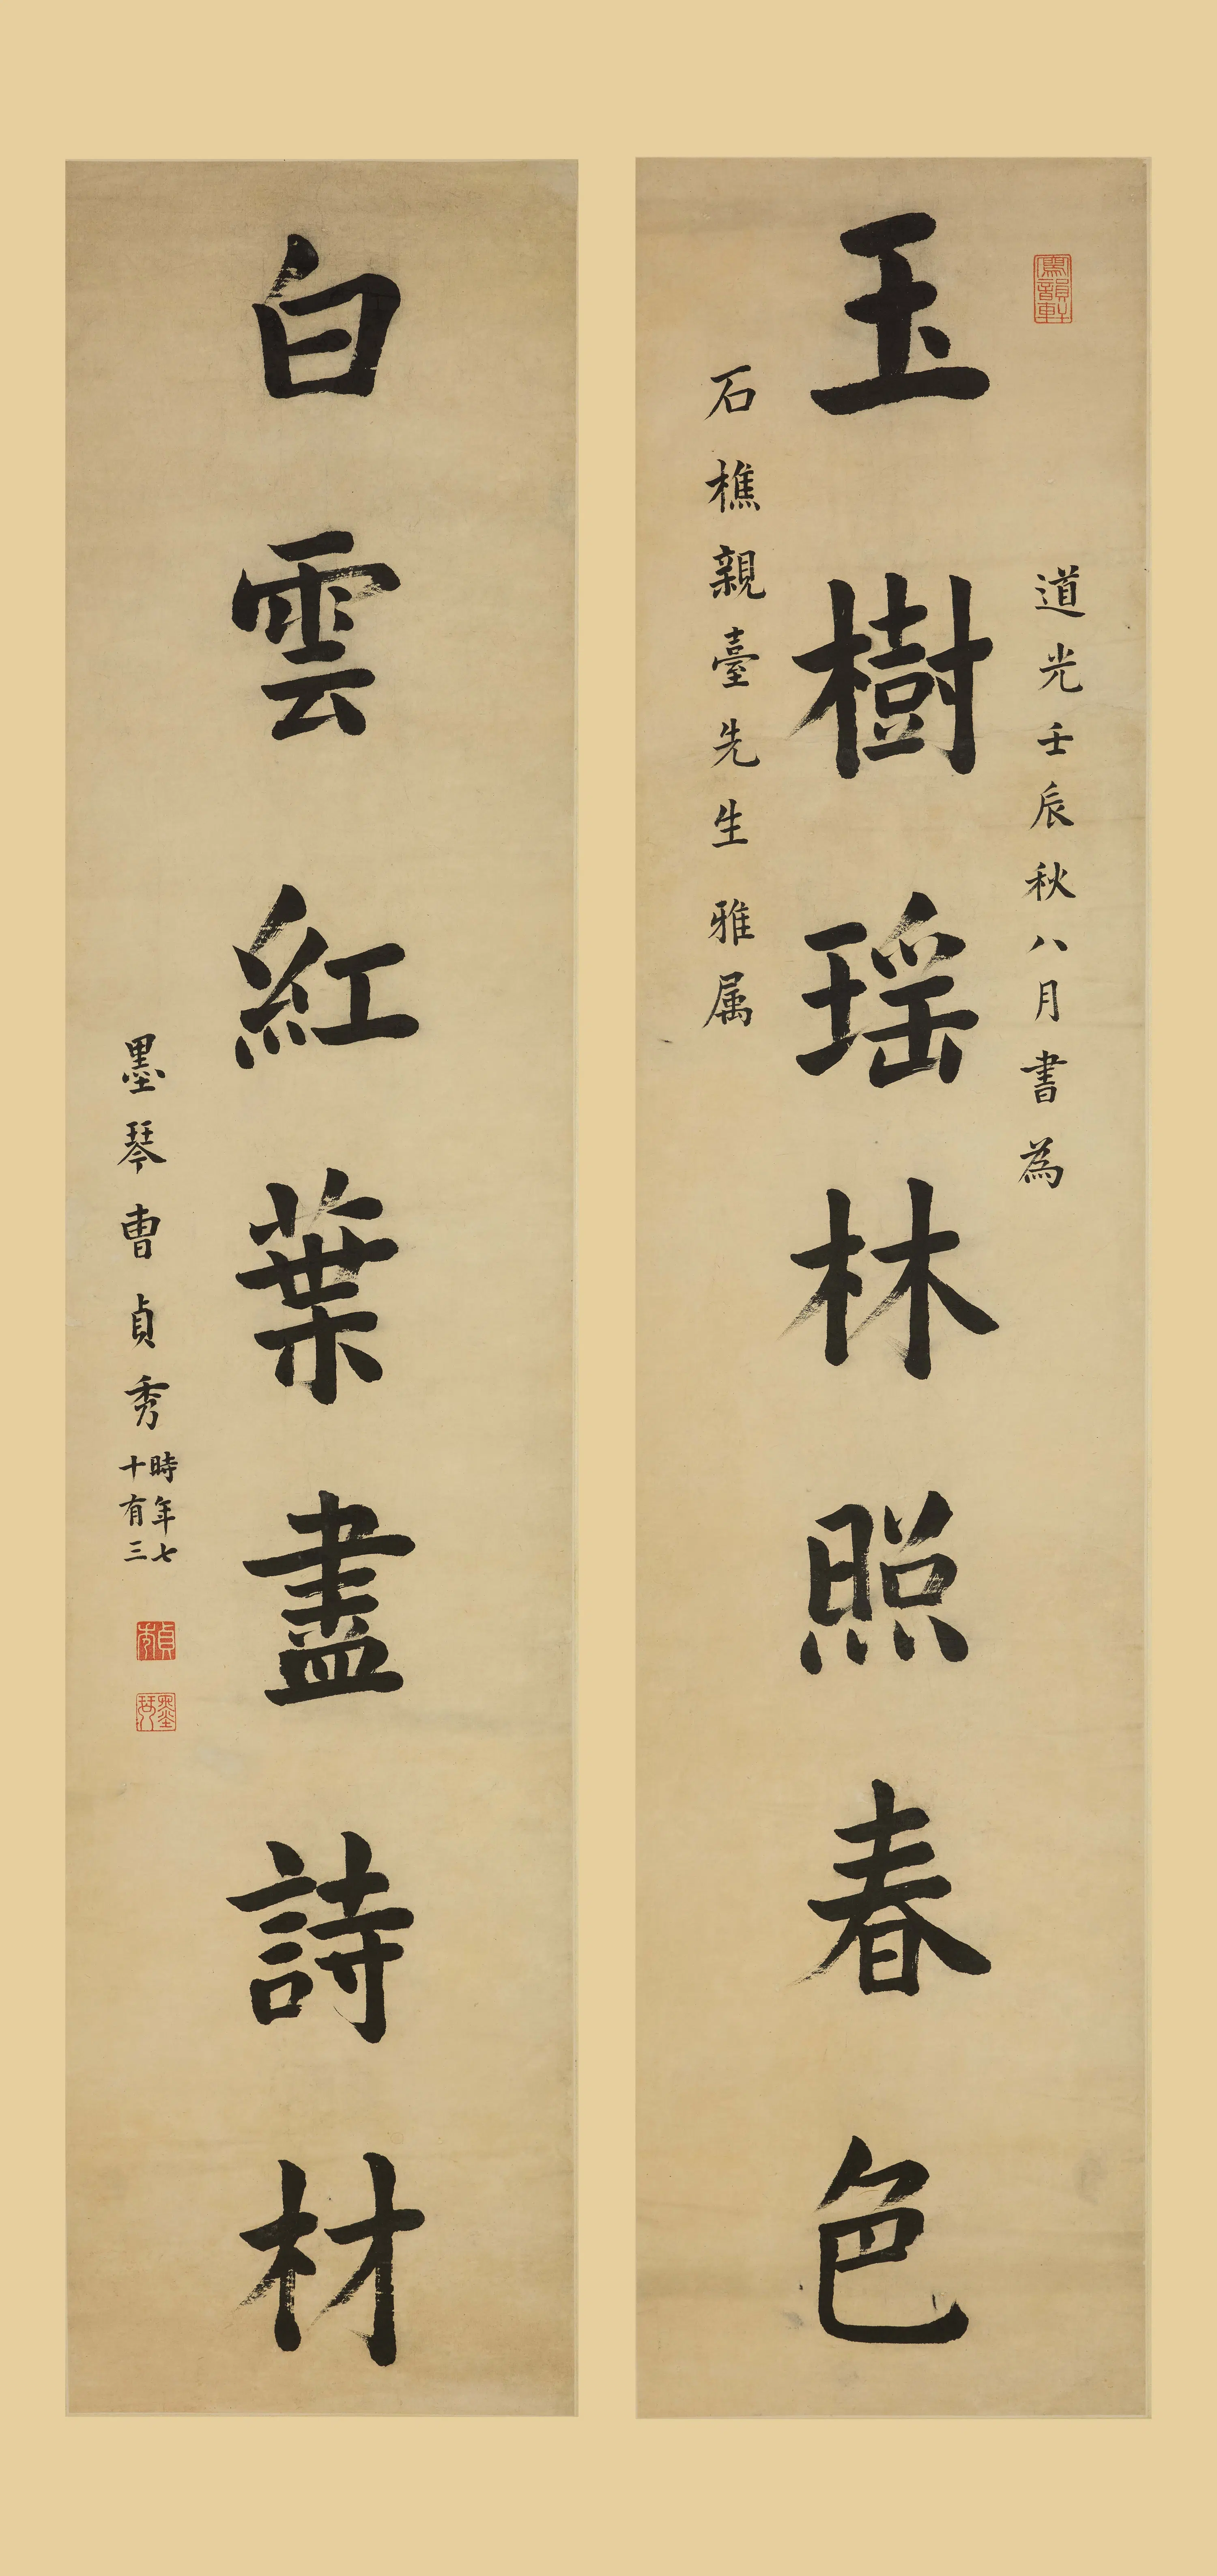 玉樹瑤林照春色
道光壬辰秋八月書為
石樵親臺先生雅属
寫韻軒
白雲紅葉盡詩材
墨琴曹貞秀時年七十有三
貞秀
墨琴